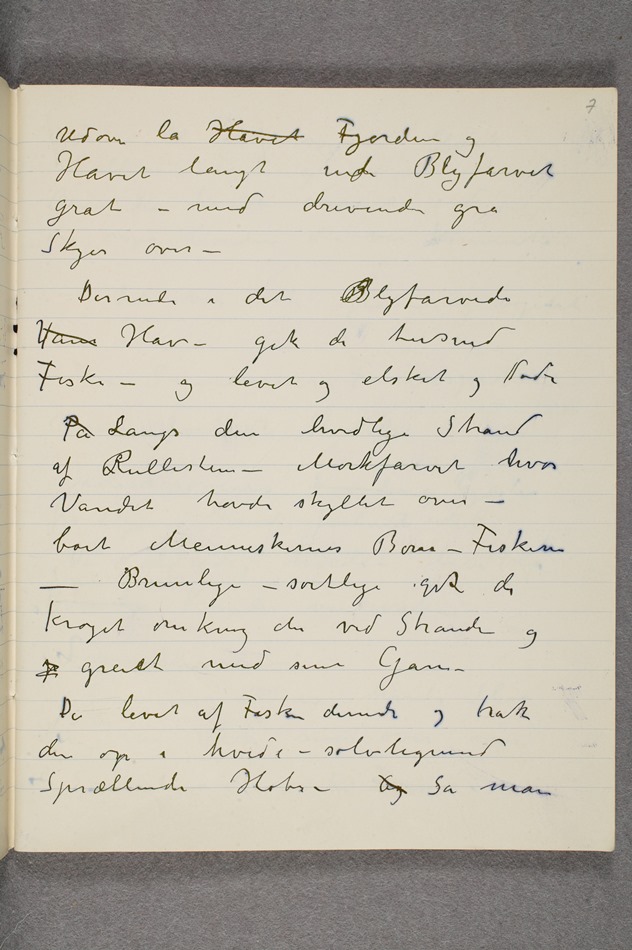 7
Udover la Havet Fjorden og
Havet langt ude Blyfarvet
gråt – med drivende gra
Skyer over –
Dernede i det Blyfarvede
Hav – gik de tusind
Fiske – og levet og elsket og Døde
På Langs den hvidlige Strand
af Rullesten – Mørkfarvet hvor
Vandet havde skyllet over –
bort Menneskernes Fiskern
– Brunlige – sortlige gik de
kroget omkring der ved Stranden og
greiet med sine Garn –
De levet af Fisken dernede og trak
den op i hvide – sølvlignend
Sprællende Hobe – Og Sa man